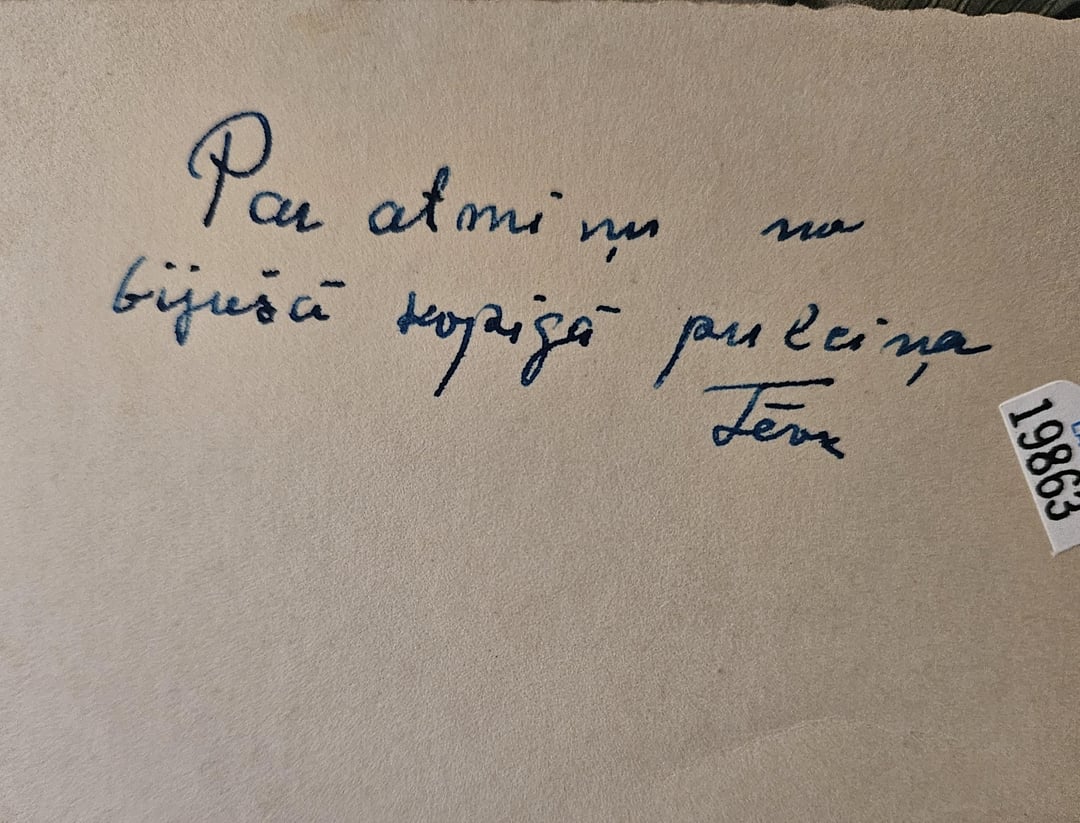 Par atmiņu no
bijušā kopīgā pulciņa
Tēvs
19863